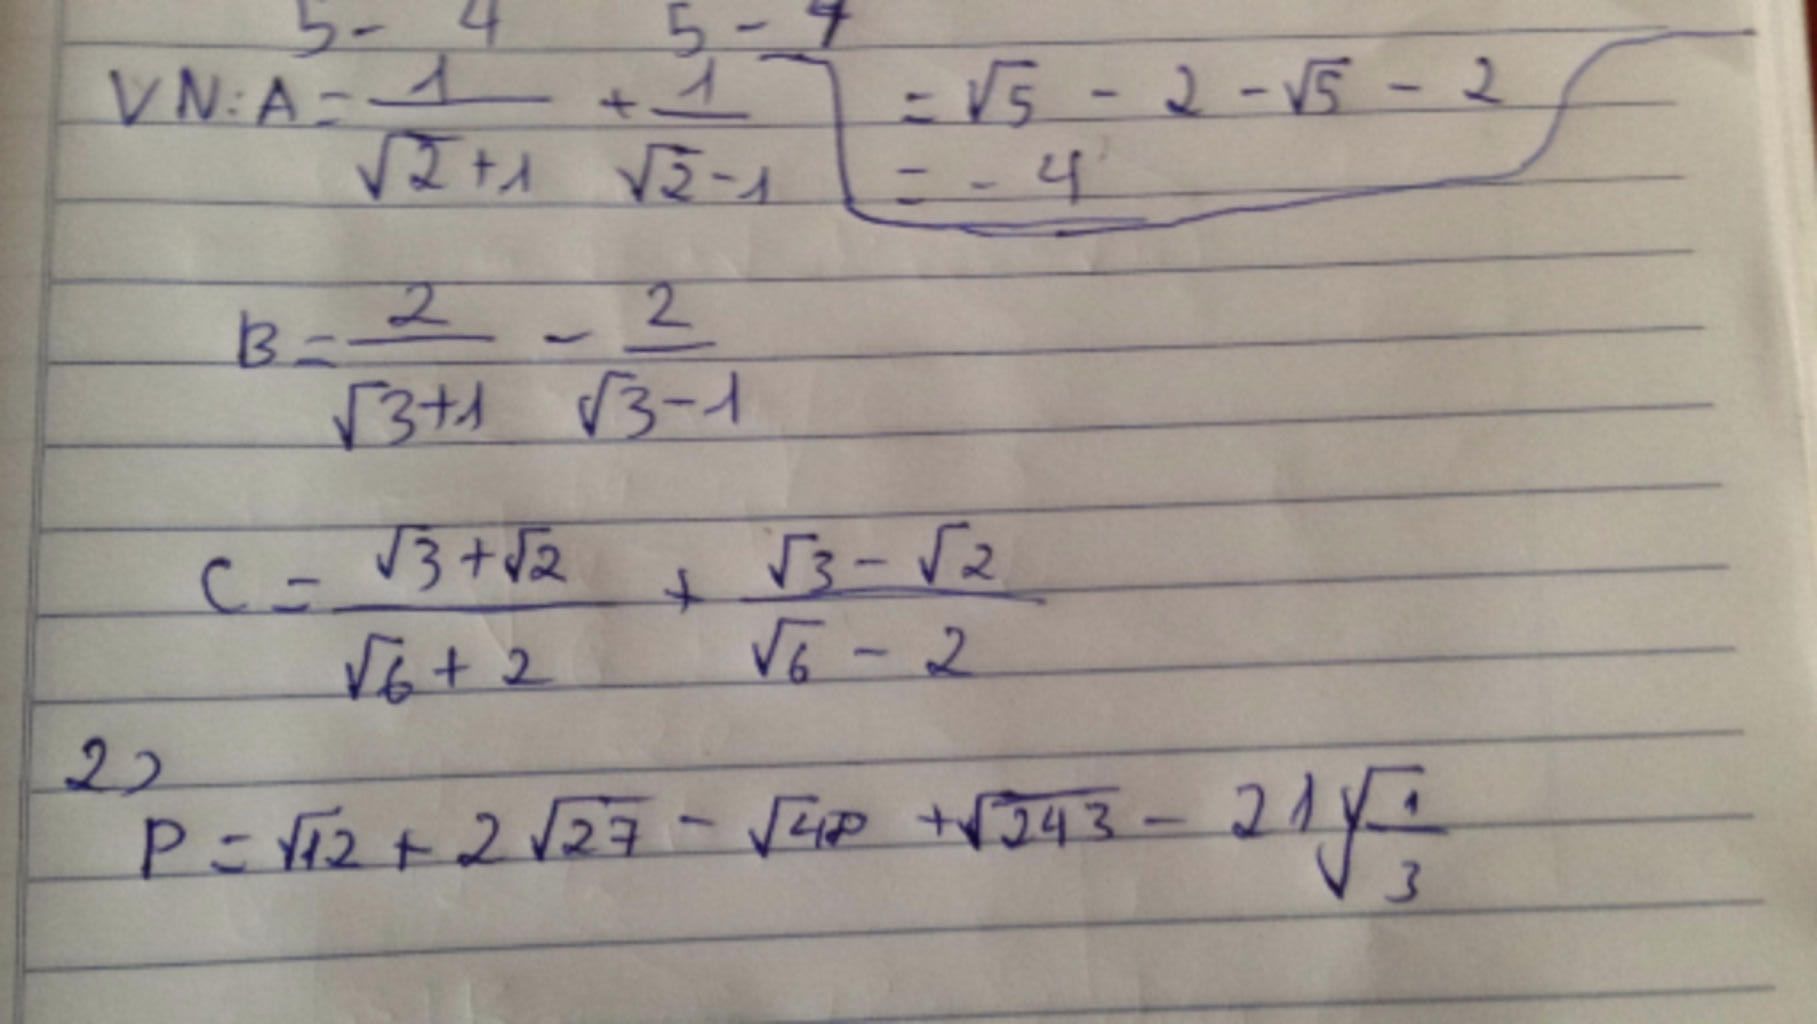 5 - 4    5 - 4
VN: A = 1/(√2 + 1) + 1/(√2 - 1)
= √5 - 2 - √5 - 2
= - 4
B = 2/(√3 + 1) - 2/(√3 - 1)
C = (√3 + √2)/(√6 + 2) + (√3 - √2)/(√6 - 2)
2)
P = √12 + 2√27 - √48 + √243 - 21√(1/3)